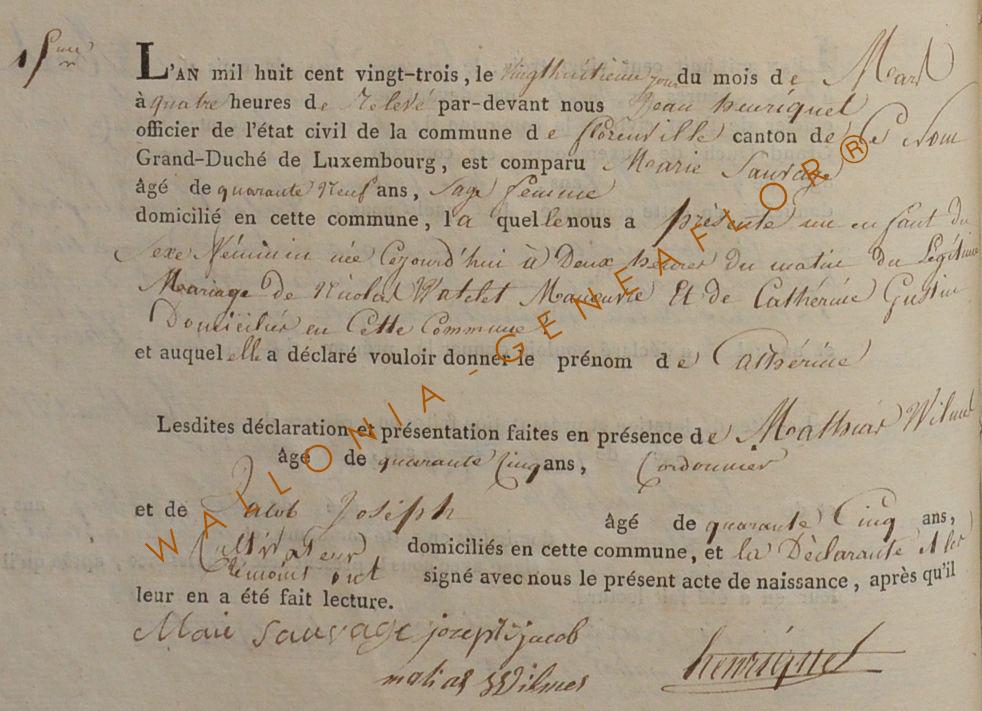 15.me
L'AN mil huit cent vingt-trois, le vingthuitieme jour du mois de Mars
à quatre heures de Relevé par-devant nous Jean henriquet
officier de l'état civil de la commune de florenville canton de Ce Nom
Grand-Duché de Luxembourg, est comparu Marie Sauvage
âgé de quarante Neuf ans, Sage femme
domicilié en cette commune, la quelle nous a présenté un enfant du
Sexe Féminin née Cejourd'hui à Deux heures du matin du Légitime
Mariage de Nicolas Watelet Maneuvre Et de Cathérine Gustin
Domiciliés en Cette Commune
et auquel elle a déclaré vouloir donner le prénom de Cathérine
Lesdites déclaration et présentation faites en présence de Mathias Wilmes
âgé de quarante Cinq ans, Cordonnier
et de Jacob Joséph âgé de quarante Cinq ans,
Cultivateur domiciliés en cette commune, et la Déclarante et les
témoins ont signé avec nous le présent acte de naissance, après qu'il
leur en a été fait lecture.
Marie Sauvage joseph jacob
matias Wilmes henriquet
WALLONIA-GENEAFLOR®